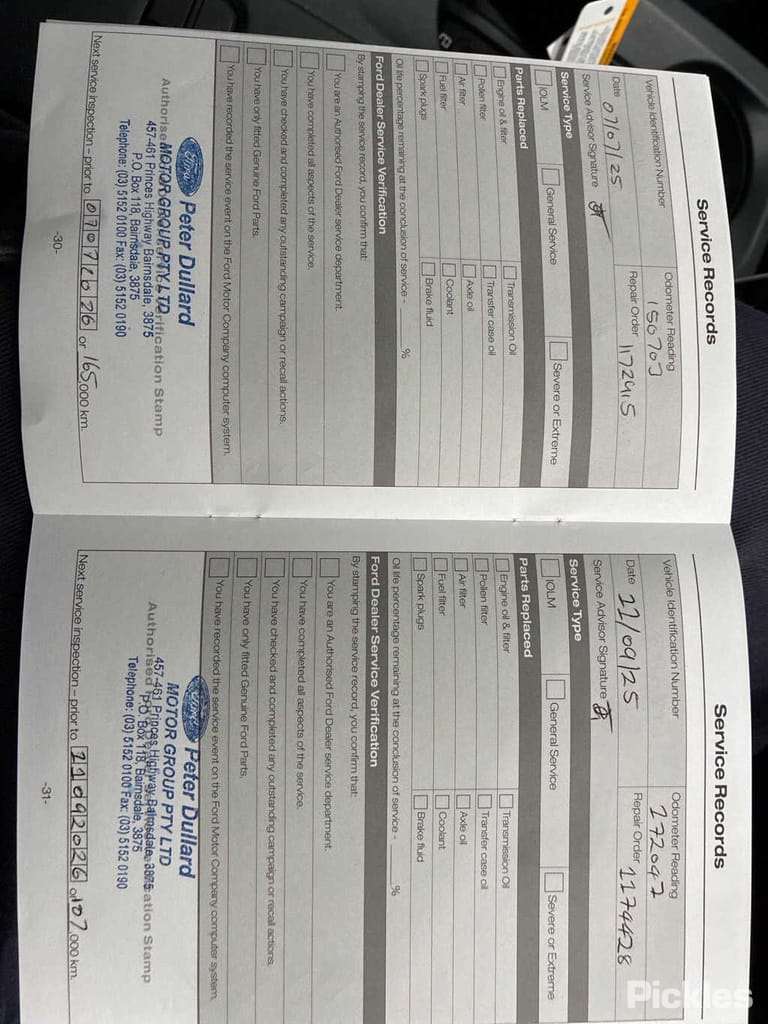 Service Records
Vehicle Identification Number
Odometer Reading
150703
Date 07/07/25
Repair Order 1172415
Service Advisor Signature
Service Type
IOLM
General Service
Severe or Extreme
Parts Replaced
Engine oil & filter
Transmission Oil
Pollen filter
Transfer case oil
Air filter
Axle oil
Fuel filter
Coolant
Spark plugs
Brake fluid
Oil life percentage remaining at the conclusion of service - %
Ford Dealer Service Verification
By stamping the service record, you confirm that:
You are an Authorised Ford Dealer service department.
You have completed all aspects of the service.
You have checked and completed any outstanding campaign or recall actions.
You have only fitted Genuine Ford Parts.
You have recorded the service event on the Ford Motor Company computer system.
Ford
Peter Dullard
MOTOR GROUP PTY LTD
457-461 Princes Highway Bairnsdale, 3875
P.O Box 118, Bairnsdale, 3875
Telephone: (03) 5152 0100 Fax: (03) 5152 0190
Next service inspection – prior to 07072026 or 165,000 km.
-30-
Service Records
Vehicle Identification Number
Odometer Reading
172047
Date 22/09/25
Repair Order 1174428
Service Advisor Signature
Service Type
IOLM
General Service
Severe or Extreme
Parts Replaced
Engine oil & filter
Transmission Oil
Pollen filter
Transfer case oil
Air filter
Axle oil
Fuel filter
Coolant
Spark plugs
Brake fluid
Oil life percentage remaining at the conclusion of service - %
Ford Dealer Service Verification
By stamping the service record, you confirm that:
You are an Authorised Ford Dealer service department.
You have completed all aspects of the service.
You have checked and completed any outstanding campaign or recall actions.
You have only fitted Genuine Ford Parts.
You have recorded the service event on the Ford Motor Company computer system.
Ford
Peter Dullard
MOTOR GROUP PTY LTD
457-461 Princes Highway Bairnsdale, 3875
P.O Box 118, Bairnsdale, 3875
Telephone: (03) 5152 0100 Fax: (03) 5152 0190
Next service inspection – prior to 21092026 or 107,000 km.
-31-
Pickles